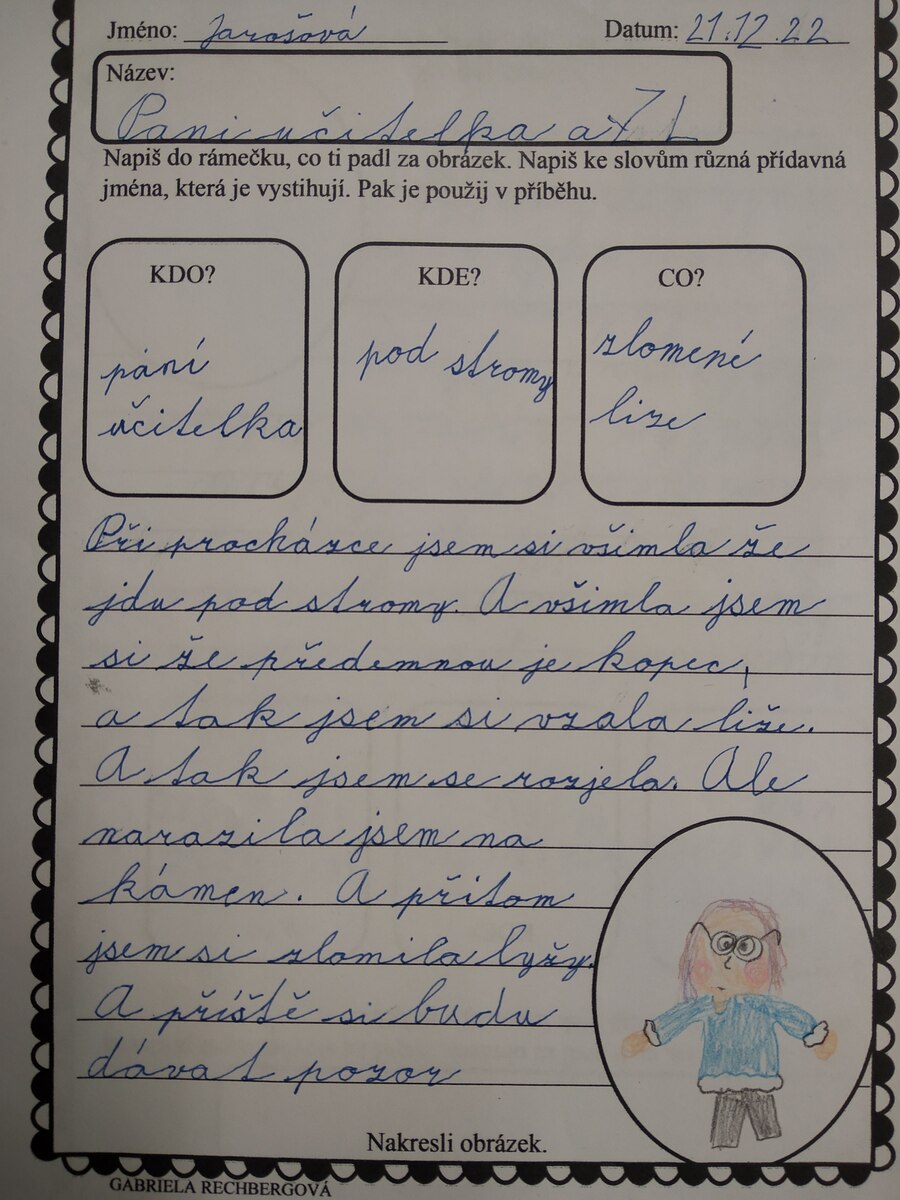 Jméno: Jarošová Datum: 21.12.22
Název:
Pani učitelka a Z L
Napiš do rámečku, co ti padl za obrázek. Napiš ke slovům různá přídavná
jména, která je vystihují. Pak je použij v příběhu.
KDO? KDE? CO?
pání pod stromy zlomené
učitelka lize
Při procházce jsem si všimla že
jdu pod stromy. A všimla jsem
si že předemnou je kopec,
a tak jsem si vzala liže.
A tak jsem se rozjela. Ale
narazila jsem na
kámen. A přitom
jsem si zlomila lyžy.
A příště si budu
dávat pozor
Nakresli obrázek.
GABRIELA RECHBERGOVÁ